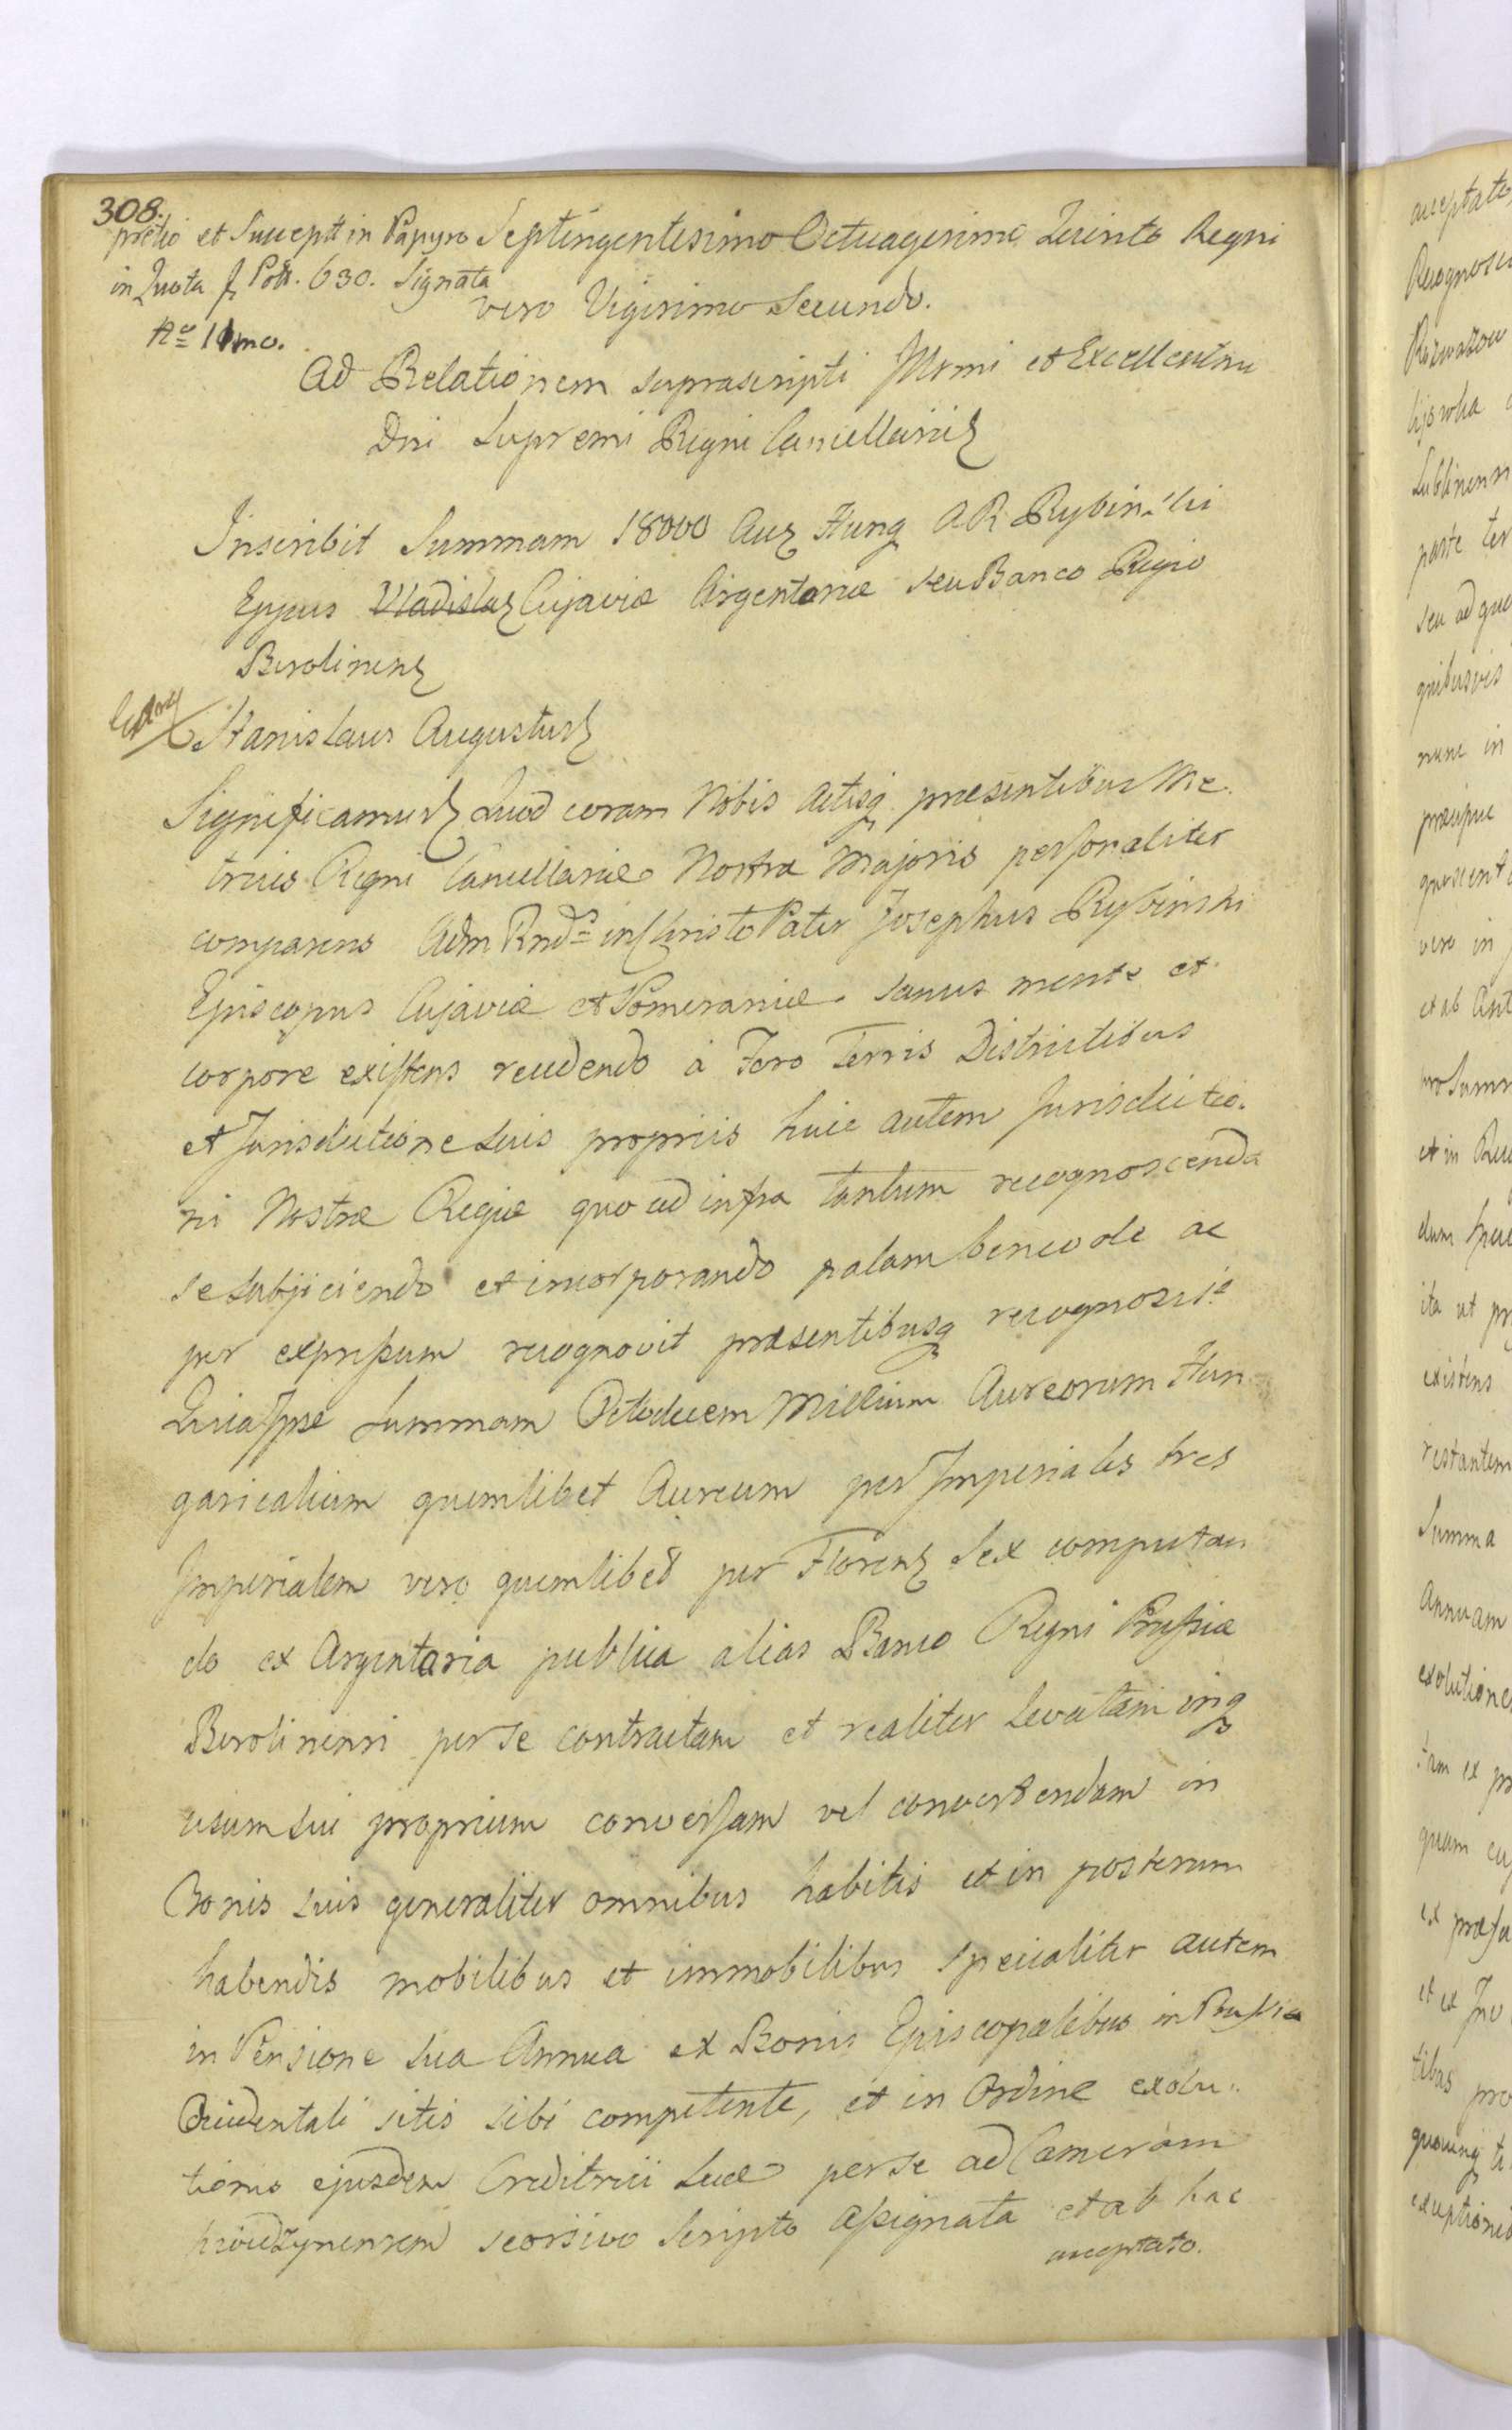 308.
pretio et Suscepti in Papyro
in Quota fl Poll. 630. Signata
No 1mo.
Septingentesimo Octuagesimo Quinto Regni
vero Vigesimo Secundo.
Ad Relationem suprascripti Illrmi et Excellentmi
Dni Supremi Regni Cancellarii
Inscribit Summam 18000 Aur Hung A R Rybinski
Eppus Vladislav Cujaviæ Argentariæ seu Banco Regio
Berolinen
Stanislaus Augustus
Significamus Quod coram Nobis Actisq præsentibus Me
tricis Regni Cancellariæ Nostræ Majoris personaliter
comparens Adm Rnds in Christo Pater Josephus Rybinski
Episcopus Cujaviæ et Pomeraniæ sanus mente et
corpore existens recedendo à Foro Terris Districtibus
et Jurisdictione suis propriis huic autem Jurisdictio
ni Nostræ Regiæ quo ad infra tantum recognoscenda
se subjiciendo et incorporando palam benevole ac
per expressum recognovit præsentibusq recognoscit
Quia Ipse Summam Octodecem Millium Aureorum Hun
garicalium quemlibet Aureum per Imperiales tres
Imperialem vero quemlibet per Floren Sex computan
do ex Argentaria publica alias Banco Regni Prussiæ
Berolinensi per se contractam et realiter Levatam inq
usum sui proprium conversam vel convertendam in
Bonis suis generaliter omnibus habitis et in posterum
habendis mobilibus et immobilibus specialiter autem
in Pensione sua Annua ex Bonis Episcopalibus in Prussia
Occidentali sitis sibi competente, et in Ordine exolu
tionis ejusdem Creditrici suæ per se ad Cameram
seorsivo Scripto assignata et ab hac
acceptato.